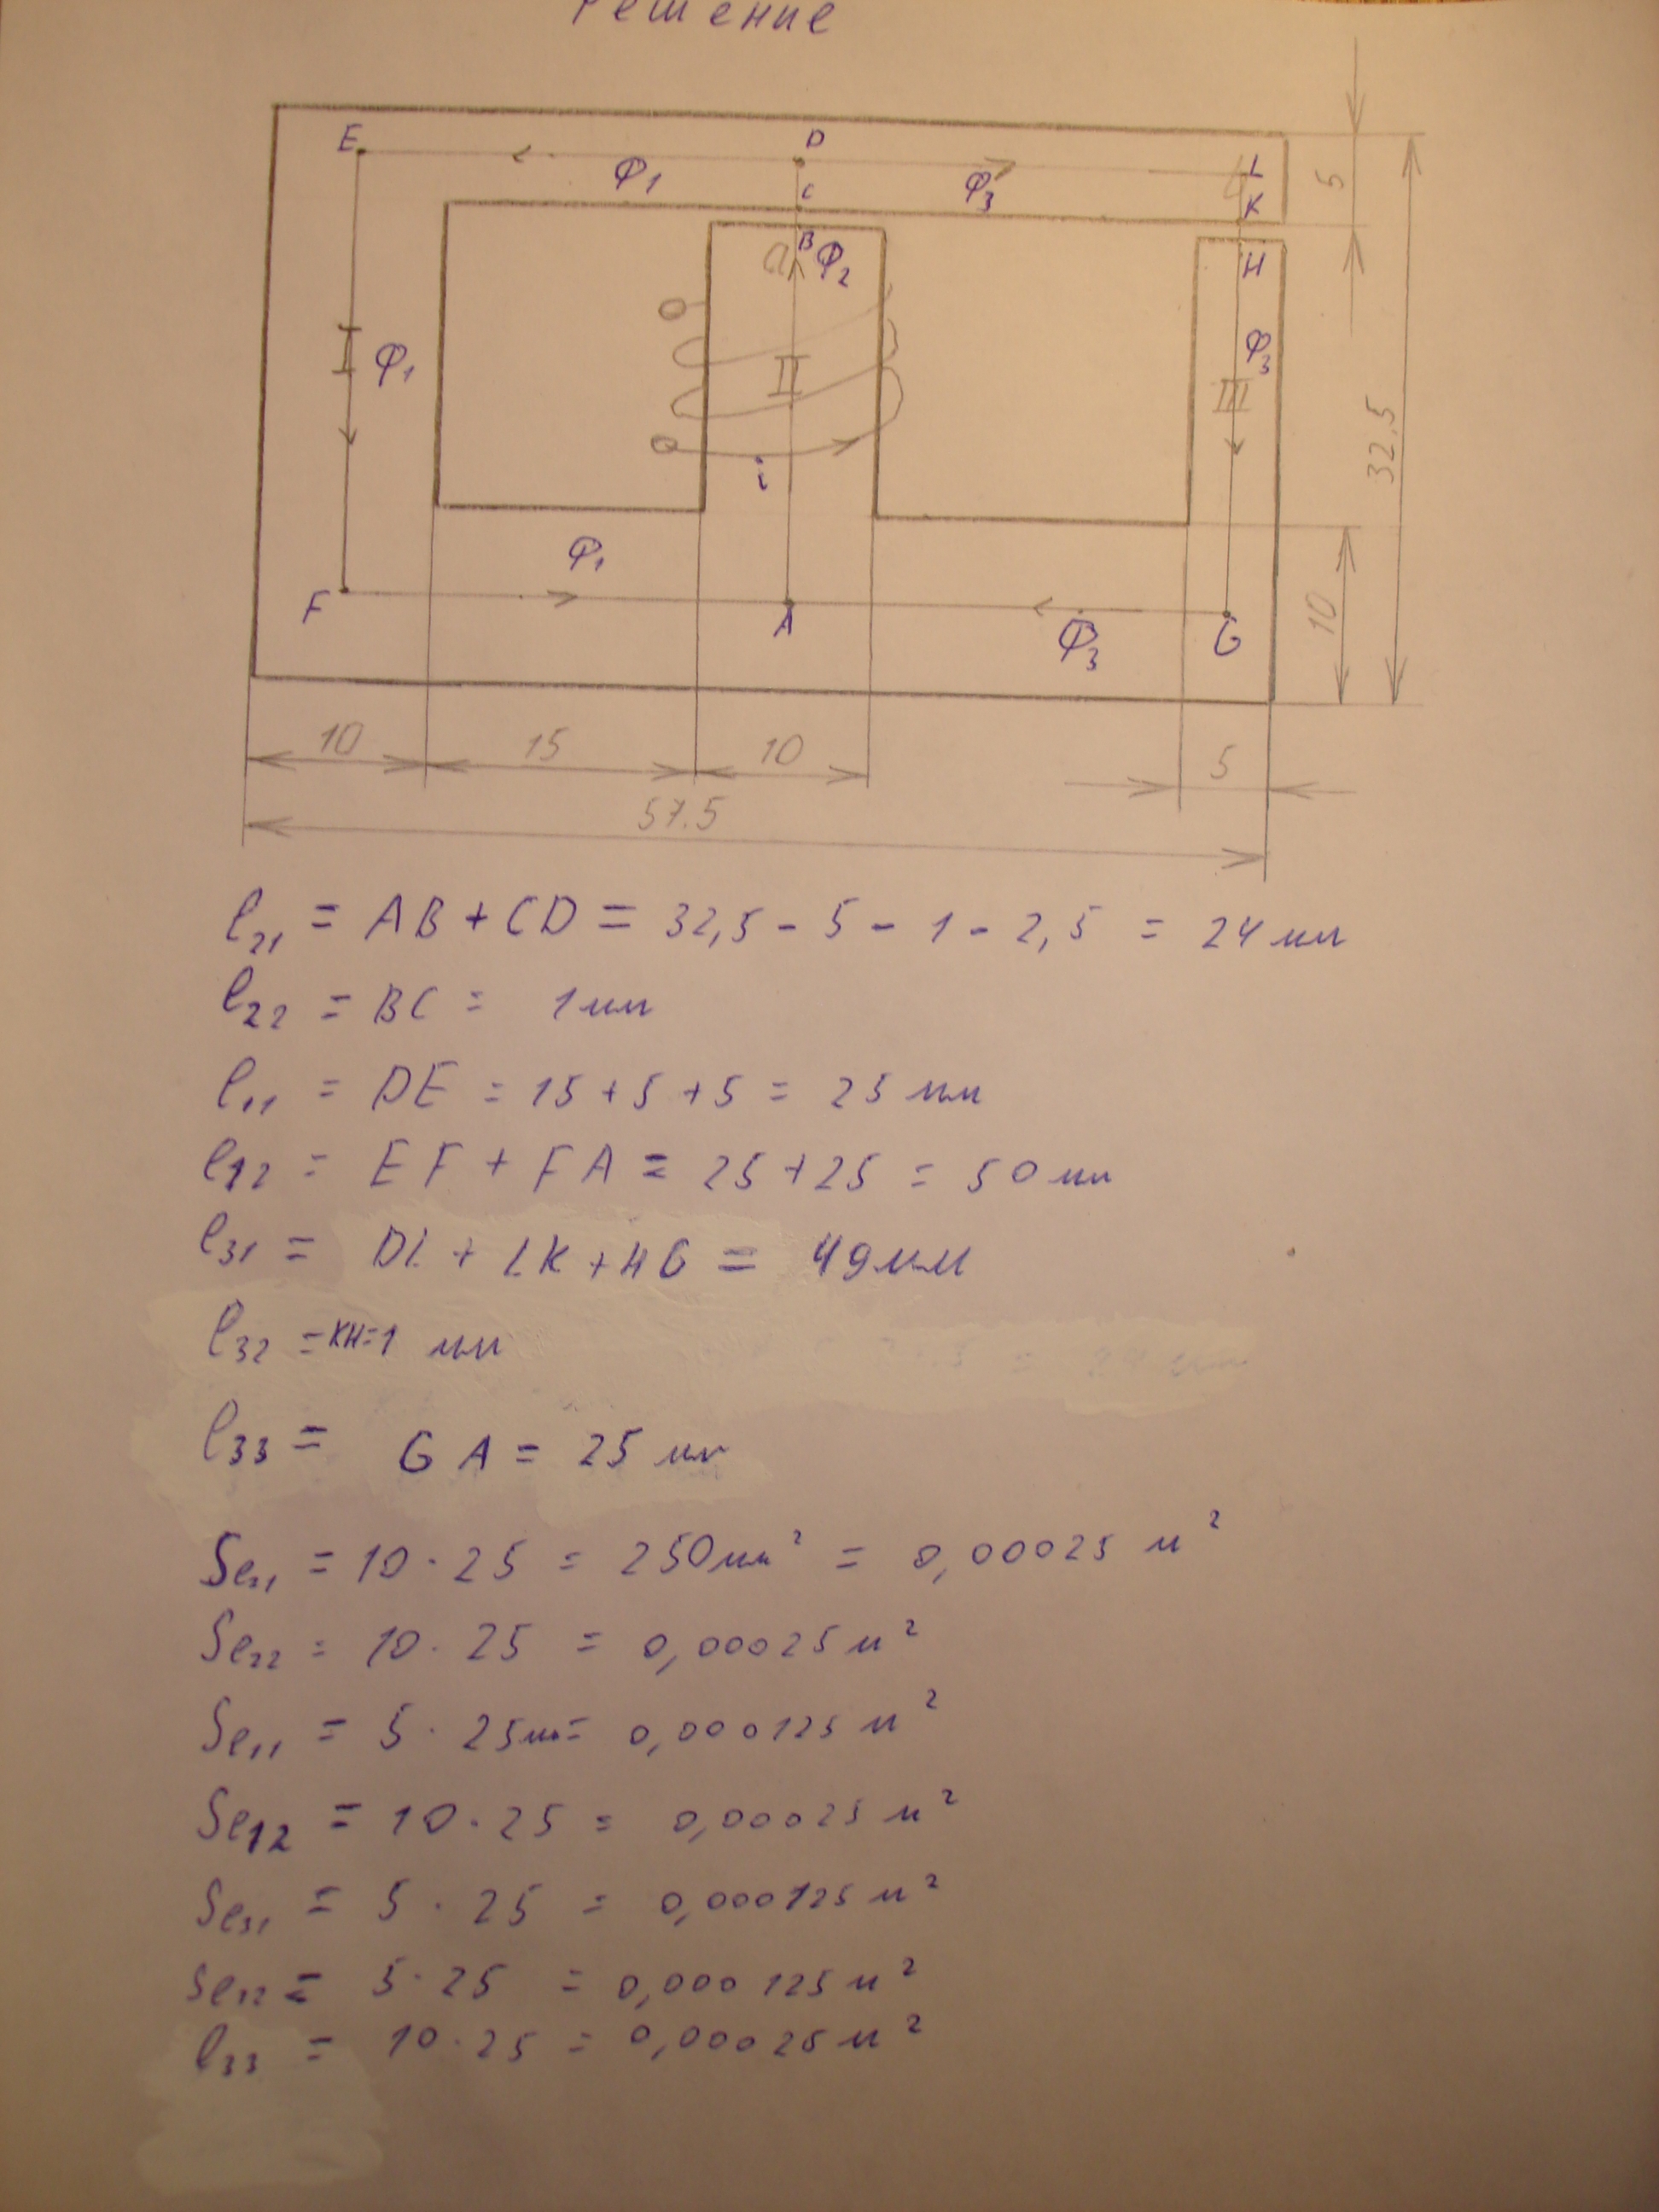 Решение
E D L
Φ1 C Φ3 K 5
B a Φ2 H
I Φ1 II Φ3 III 32,5
i
Φ1 10
F A Φ3 G
10 15 10 5
57.5
l21 = AB + CD = 32,5 - 5 - 1 - 2,5 = 24 мм
l22 = BC = 1 мм
l11 = DE = 15 + 5 + 5 = 25 мм
l12 = EF + FA = 25 + 25 = 50 мм
l31 = DL + LK + HG = 49 мм
l32 = KH = 1 мм
l33 = GA = 25 мм
Se21 = 10 · 25 = 250 мм² = 0,00025 м²
Se22 = 10 · 25 = 0,00025 м²
Se11 = 5 · 25 мм = 0,000125 м²
Se12 = 10 · 25 = 0,00025 м²
Se31 = 5 · 25 = 0,000125 м²
Se32 = 5 · 25 = 0,000125 м²
l33 = 10 · 25 = 0,00025 м²